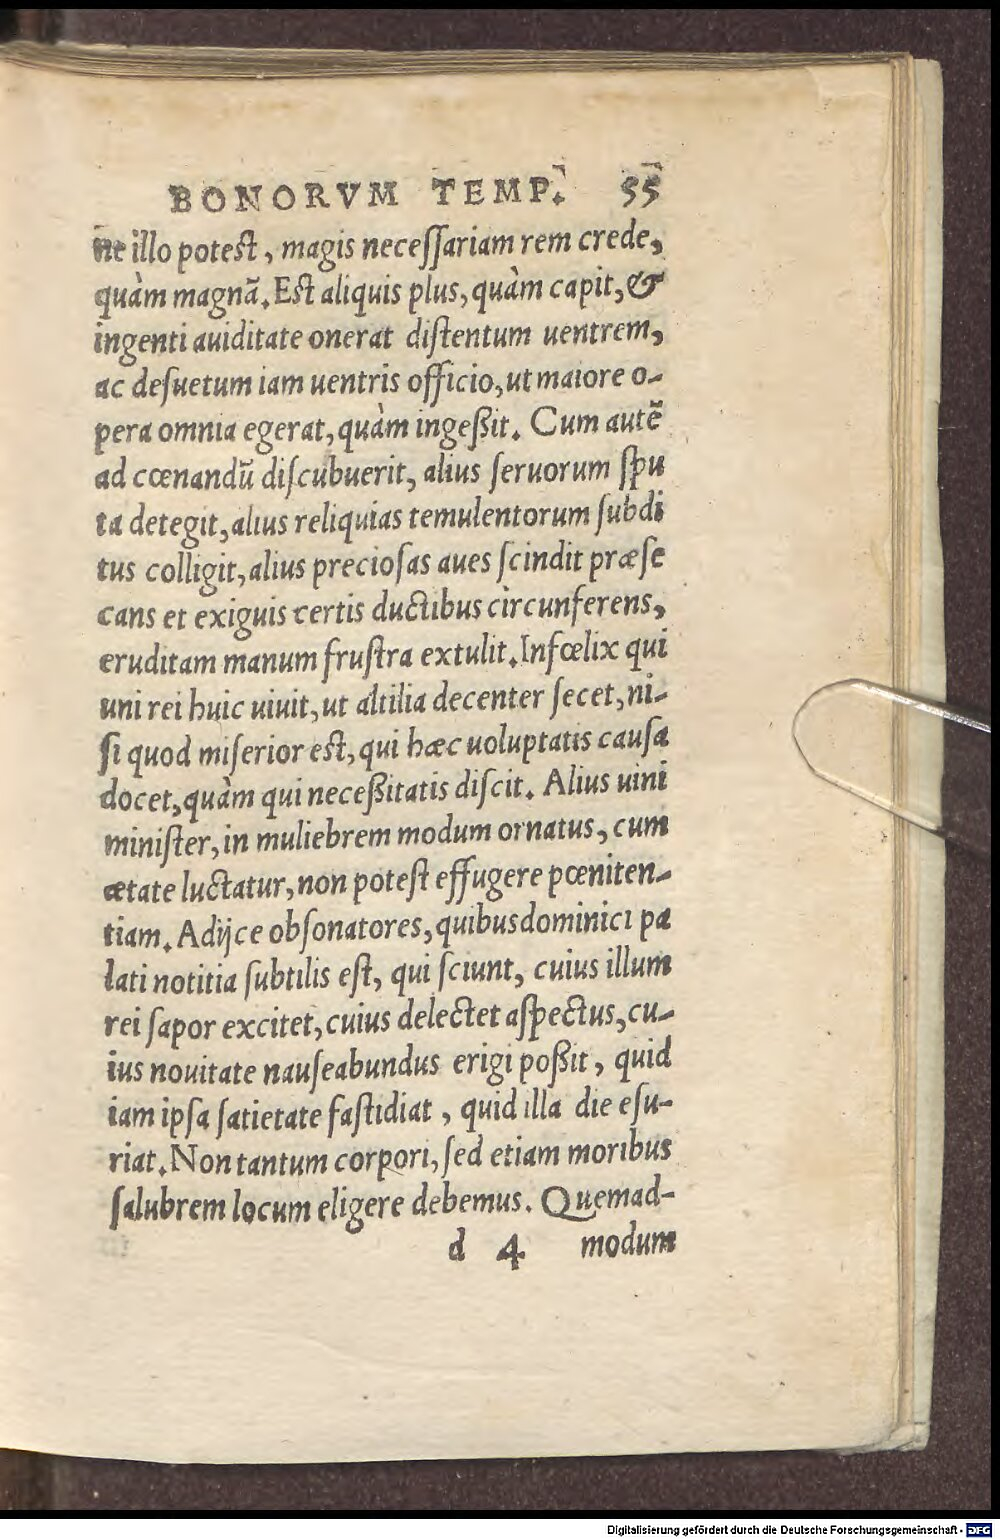 BONORVM TEMP. 55
ne illo potest, magis necessariam rem crede,
quàm magnã. Est aliquis plus, quàm capit, &
ingenti auiditate onerat distentum uentrem,
ac desuetum iam uentris officio, ut maiore o-
pera omnia egerat, quàm ingeßit. Cum autẽ
ad cœnandũ discubuerit, alius seruorum spu
ta detegit, alius reliquias temulentorum subdi
tus colligit, alius preciosas aues scindit præse
cans et exiguis certis ductibus circunferens,
eruditam manum frustra extulit. Infœlix qui
uni rei huic uiuit, ut altilia decenter secet, ni-
si quod miserior est, qui hæc uoluptatis causa
docet, quàm qui neceßitatis discit. Alius uini
minister, in muliebrem modum ornatus, cum
ætate luctatur, non potest effugere pœniten-
tiam. Adijce obsonatores, quibus dominici pa
lati notitia subtilis est, qui sciunt, cuius illum
rei sapor excitet, cuius delectet aspectus, cu-
ius nouitate nauseabundus erigi poßit, quid
iam ipsa satietate fastidiat, quid illa die esu-
riat. Non tantum corpori, sed etiam moribus
salubrem locum eligere debemus. Quemad-
d 4 modum
Digitalisierung gefördert durch die Deutsche Forschungsgemeinschaft - DFG